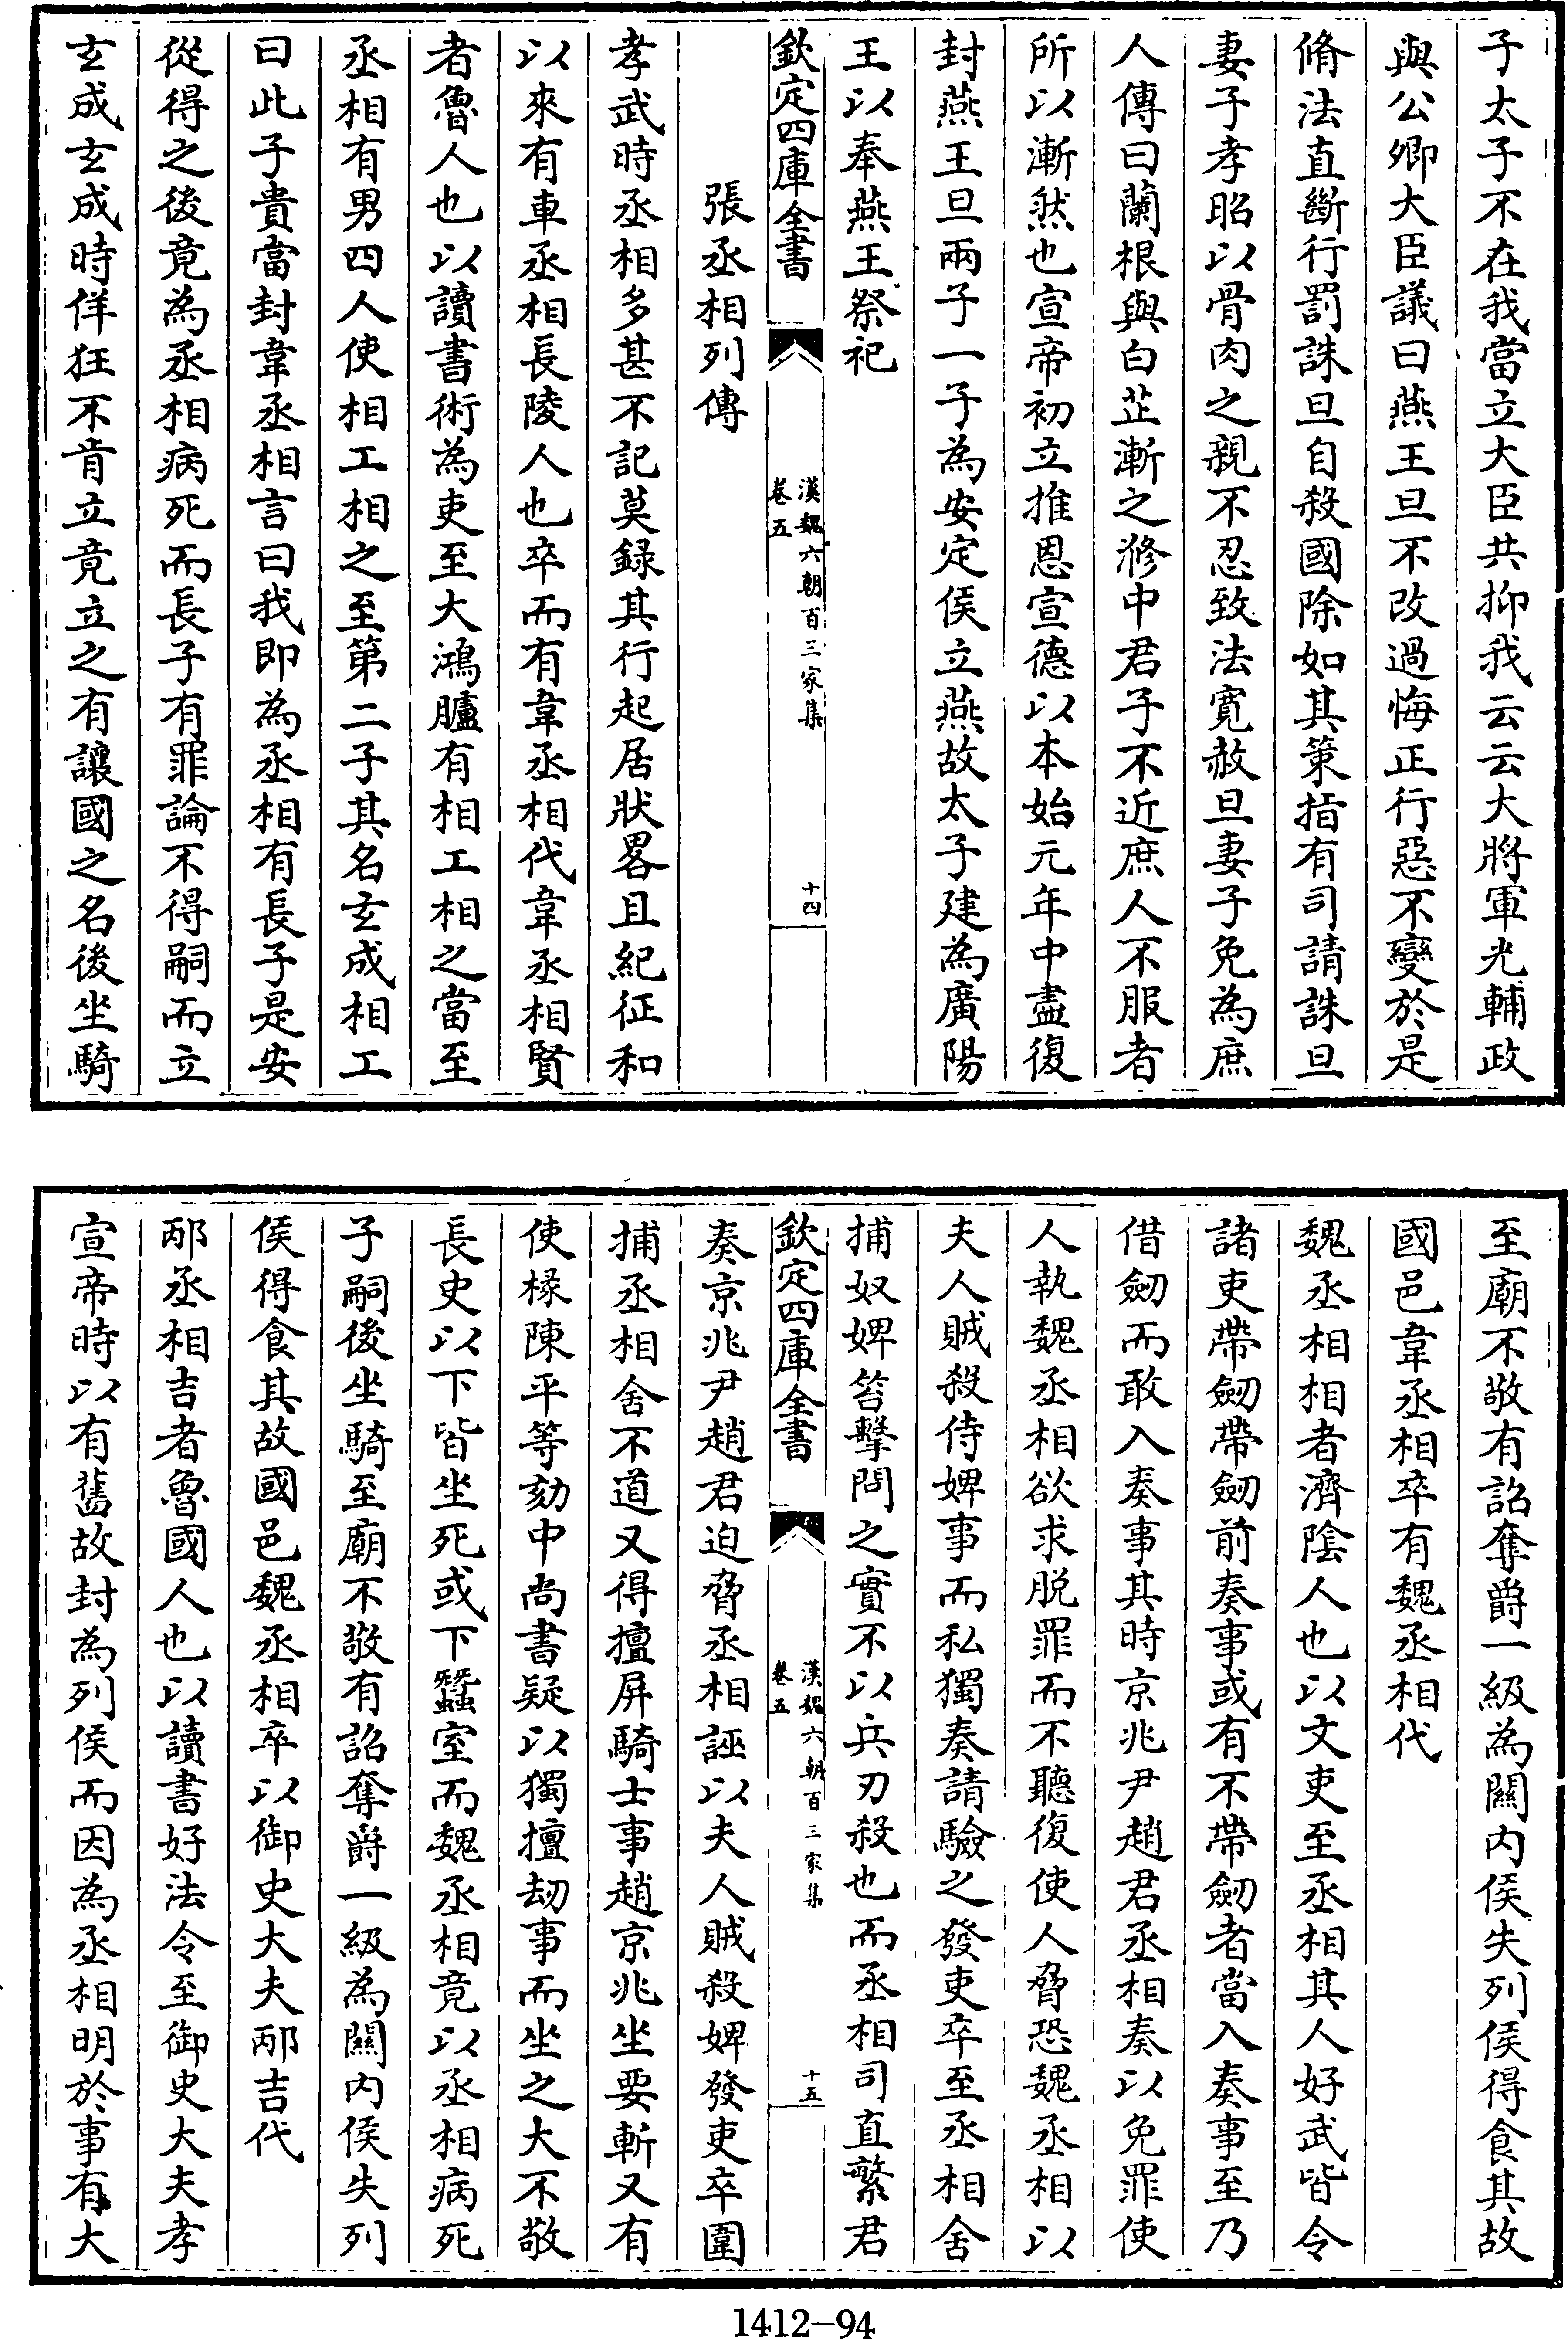 子太子不在我當立大臣共抑我云云大將軍光輔政
與公卿大臣議曰燕王旦不改過悔正行惡不變於是
脩法直斷行罰誅旦自殺國除如其策指有司請誅旦
妻子孝昭以骨肉之親不忍致法寛赦旦妻子免為庶
人傳曰蘭根與白芷漸之滫中君子不近庶人不服者
所以漸然也宣帝初立推恩宣德以本始元年中盡復
封燕王旦兩子一子為安定侯立燕故太子建為廣陽
王以奉燕王祭祀
欽定四庫全書
漢魏六朝百三家集
卷五
十四
張丞相列傳
孝武時丞相多甚不記莫録其行起居狀畧且紀征和
以來有車丞相長陵人也卒而有韋丞相代韋丞相賢
者魯人也以讀書術為吏至大鴻臚有相工相之當至
丞相有男四人使相工相之至第二子其名玄成相工
曰此子貴當封韋丞相言曰我即為丞相有長子是安
從得之後竟為丞相病死而長子有罪論不得嗣而立
玄成玄成時佯狂不肯立竟立之有讓國之名後坐騎
至廟不敬有詔奪爵一級為關内侯失列侯得食其故
國邑韋丞相卒有魏丞相代
魏丞相相者濟隂人也以文吏至丞相其人好武皆令
諸吏帶劒帶劒前奏事或有不帶劒者當入奏事至乃
借劒而敢入奏事其時京兆尹趙君丞相奏以免罪使
人執魏丞相欲求脱罪而不聽復使人脅恐魏丞相以
夫人賊殺侍婢事而私獨奏請驗之發吏卒至丞相舍
捕奴婢笞擊問之實不以兵刃殺也而丞相司直繁君
欽定四庫全書
漢魏六朝百三家集
卷五
十五
奏京兆尹趙君迫脅丞相誣以夫人賊殺婢發吏卒圍
捕丞相舍不道又得擅屏騎士事趙京兆坐要斬又有
使椽陳平等劾中尚書疑以獨擅刼事而坐之大不敬
長史以下皆坐死或下蠶室而魏丞相竟以丞相病死
子嗣後坐騎至廟不敬有詔奪爵一級為關内侯失列
侯得食其故國邑魏丞相卒以御史大夫邴吉代
邴丞相吉者魯國人也以讀書好法令至御史大夫孝
宣帝時以有舊故封為列侯而因為丞相明於事有大
1412-94